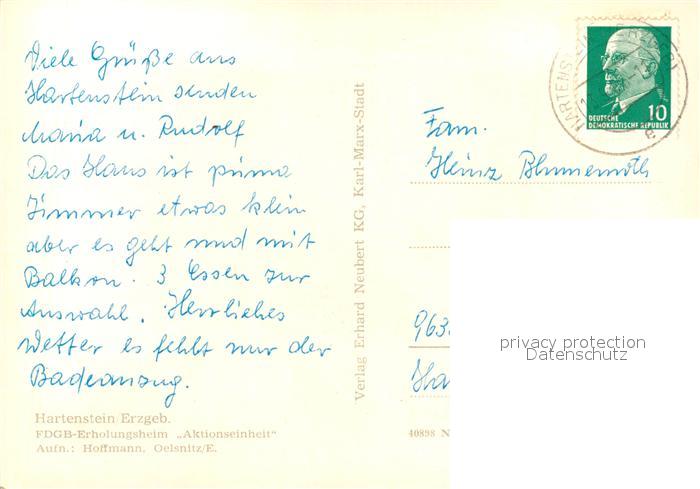 Viele Grüße aus
Hartenstein senden
Maria u. Rudolf
Das Haus ist prima
Zimmer etwas klein
aber es geht und mit
Balkon. 3 Essen zur
Auswahl. Herrliches
Wetter es fehlt nur der
Badeanzug.
Hartenstein/Erzgeb.
FDGB-Erholungsheim „Aktionseinheit"
Aufn.: Hoffmann, Oelsnitz/E.
Verlag Erhard Neubert KG, Karl-Marx-Stadt
HARTENSTEIN (ERZGEB)
10
DEUTSCHE
DEMOKRATISCHE REPUBLIK
Fam.
Heinz
963
Ha
40898 N
privacy protection
Datenschutz